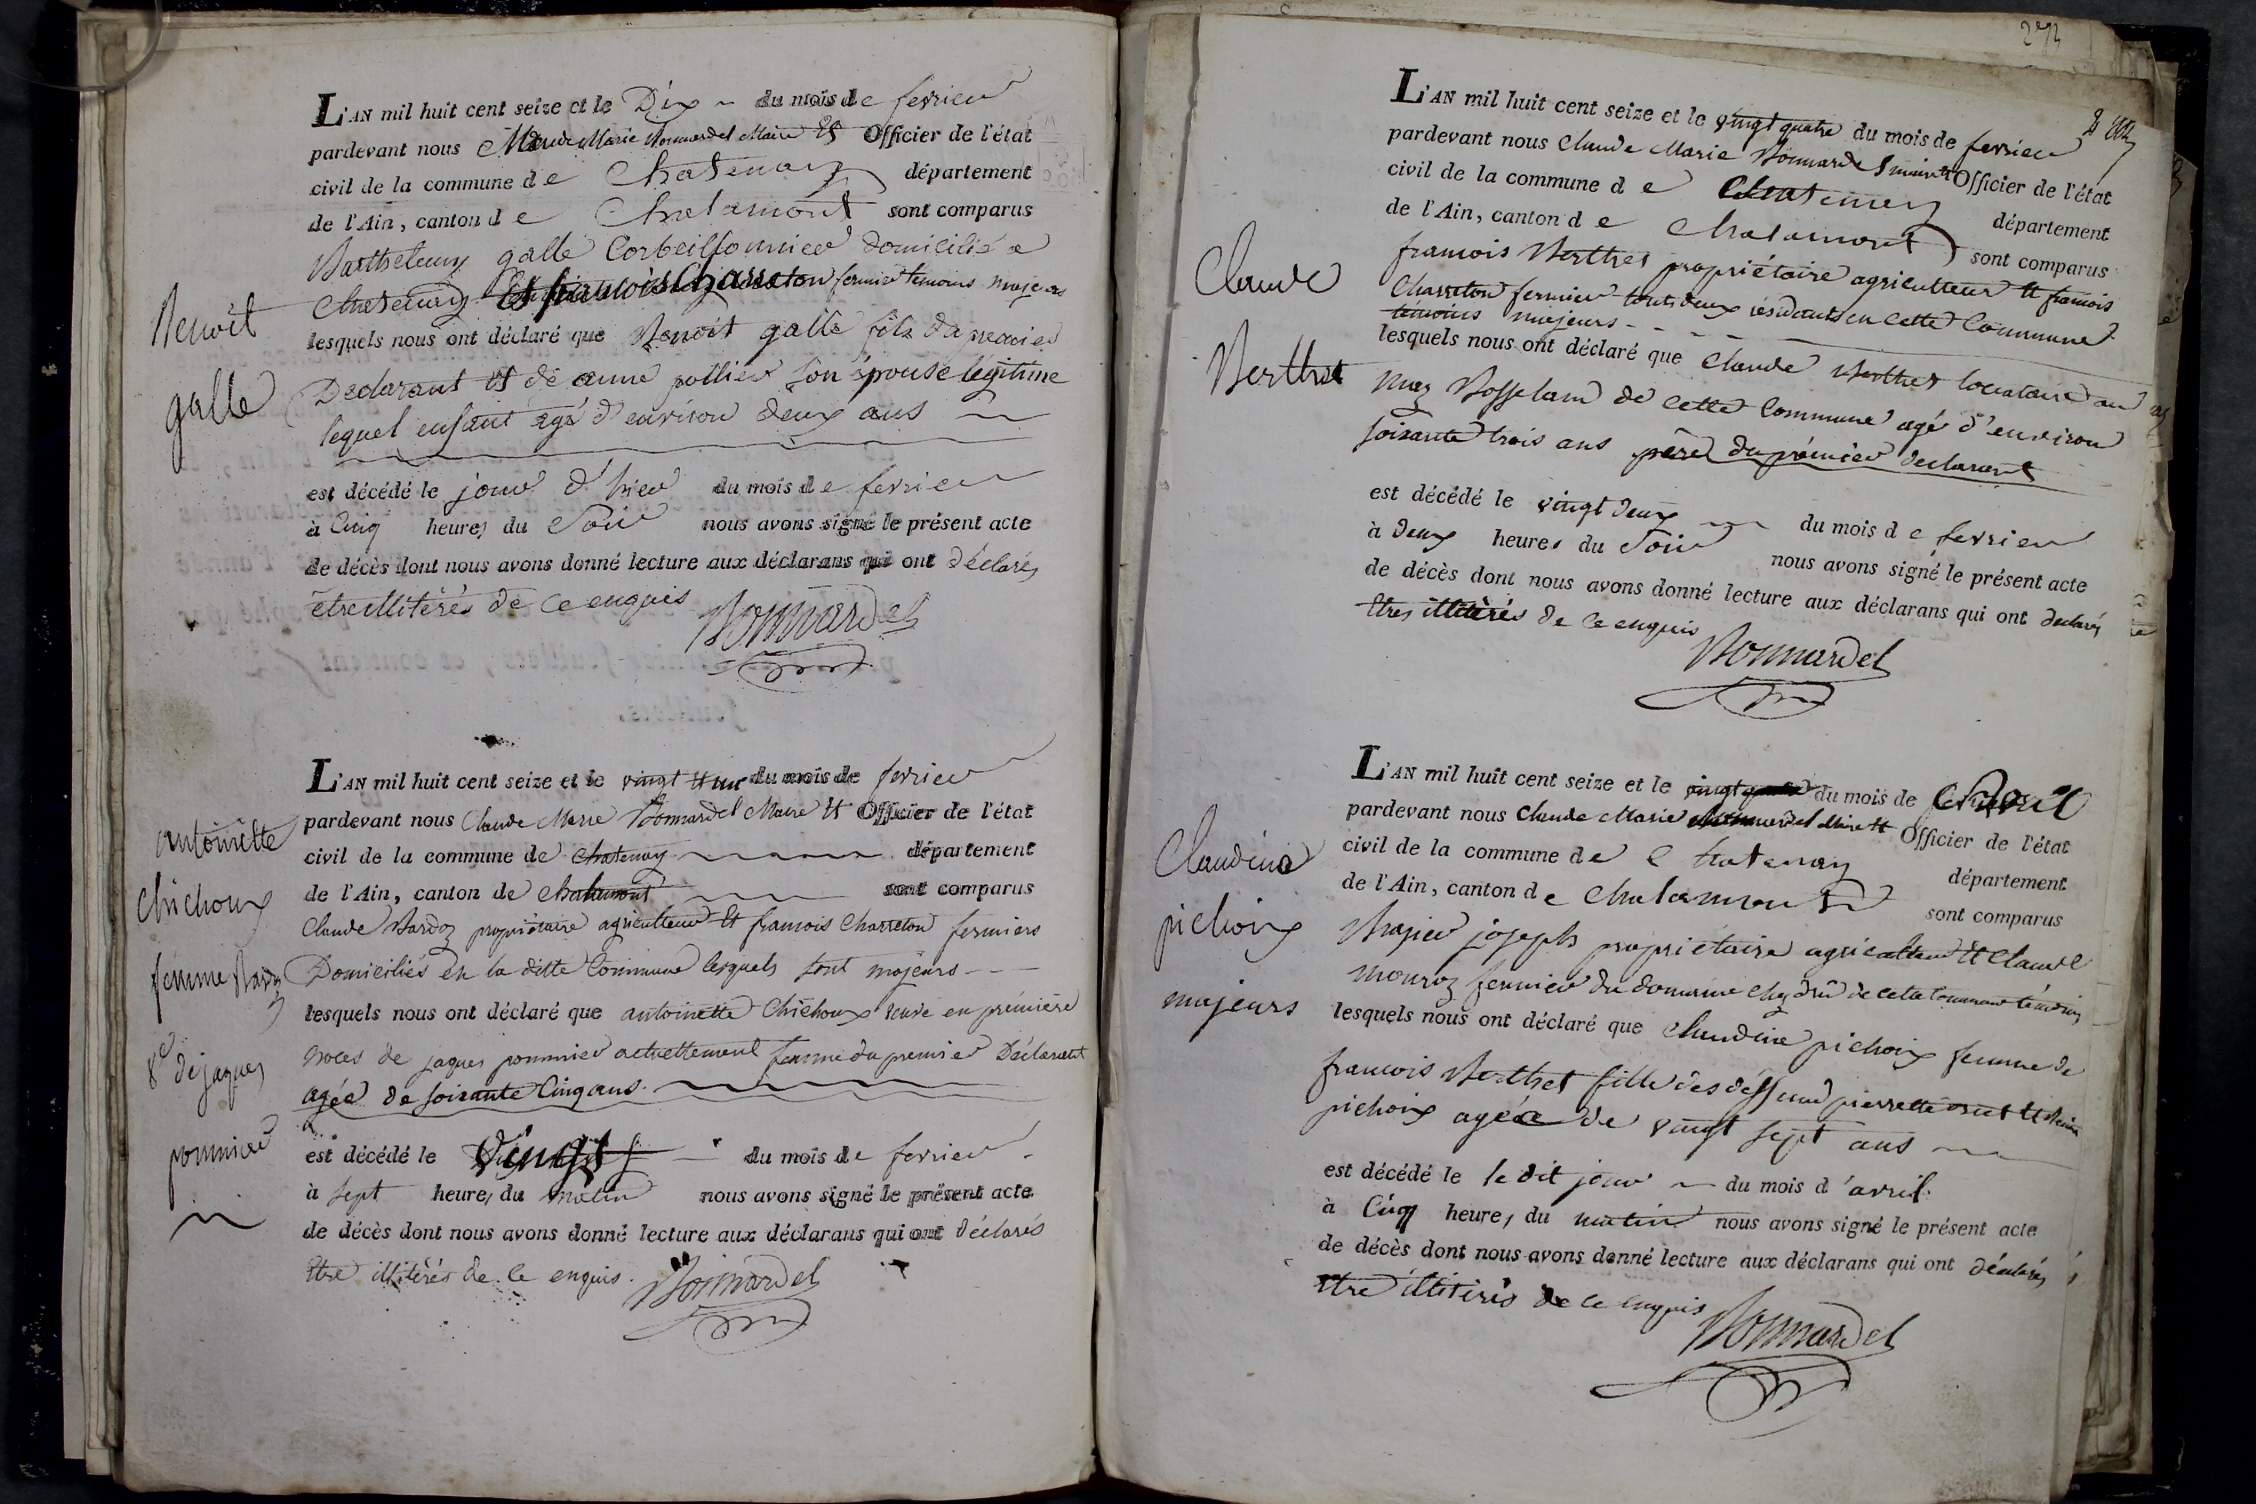 L'AN mil huit cent seize et le Dix du mois de fevrier
pardevant nous Claude Marie Bonnardel Maire Et Officier de l'état
civil de la commune de Chatenay département
de l'Ain, canton de Chalamont sont comparus
Barthelemy galle domicilié a
Chatenay Et francois Charreton fermier temoins majeurs
Benoit
lesquels nous ont déclaré que Benoit galle fils du premier
Declarant et de anne pollier son épouse légitime
galle
lequel enfant agé d'environ deux ans
est décédé le jour d'hier du mois de fevrier
à Cinq heures du Soir nous avons signé le présent acte
de décès dont nous avons donné lecture aux déclarans qui ont déclarés
etre illitérés de ce enquis Bonnardel
L'AN mil huit cent seize et le vingt et un du mois de fevrier
pardevant nous Claude Marie Bonnardel Maire et Officier de l'état
antoinette
civil de la commune de Chatenay département
de l'Ain, canton de Chalamont sont comparus
Chichoux
Claude Bardoz propriétaire agriculteur Et francois Charreton fermiers
Domiciliés en la ditte Commune lesquels sont majeurs
femme Bardoz
lesquels nous ont déclaré que antoinette Chichoux veuve en première
noces de jaques pommier actuellement femme du premier Déclarant
de jaques
agée de soixante Cinq ans.
pommier
est décédé le vingt du mois de fevrier
à sept heures du matin nous avons signé le présent acte
de décès dont nous avons donné lecture aux déclarans qui ont déclarés
être illitérés de ce enquis. Bonnardel
273
L'AN mil huit cent seize et le vingt quatre du mois de fevrier
pardevant nous Claude Marie Bonnardel maire et Officier de l'état
civil de la commune de Chatenay département
de l'Ain, canton de Chalamont sont comparus
Claude
francois Berthet propriétaire agriculteur et francois
Charreton fermier tout deux résidants en cette Commune
témoins majeurs
Berthet
lesquels nous ont déclaré que Claude Berthet locataire au
maz de cette Commune agé d'environ
soixante trois ans père du prémier declarant
est décédé le vingt deux du mois de fevrier
à deux heures du Soir nous avons signé le présent acte
de décès dont nous avons donné lecture aux déclarans qui ont declarés
etres illitérés de ce enquis Bonnardel
L'AN mil huit cent seize et le du mois de avril
pardevant nous Claude Marie Bonnardel Maire et Officier de l'état
civil de la commune de Chatenay département
Claudine
de l'Ain, canton de Chalamont sont comparus
pichoix
joseph propriétaire agriculteur et Claude
monroz fermier du domaine chez drû de cette Commune témoins
majeurs
lesquels nous ont déclaré que Claudine pichoix femme de
francois Berthet fille des deffunt pierrette et
pichoix agée de vingt sept ans
est décédé le le dit jour du mois d'avril.
à Cinq heures du matin nous avons signé le présent acte
de décès dont nous avons donné lecture aux déclarans qui ont déclarés
etre illitérés de ce enquis Bonnardel